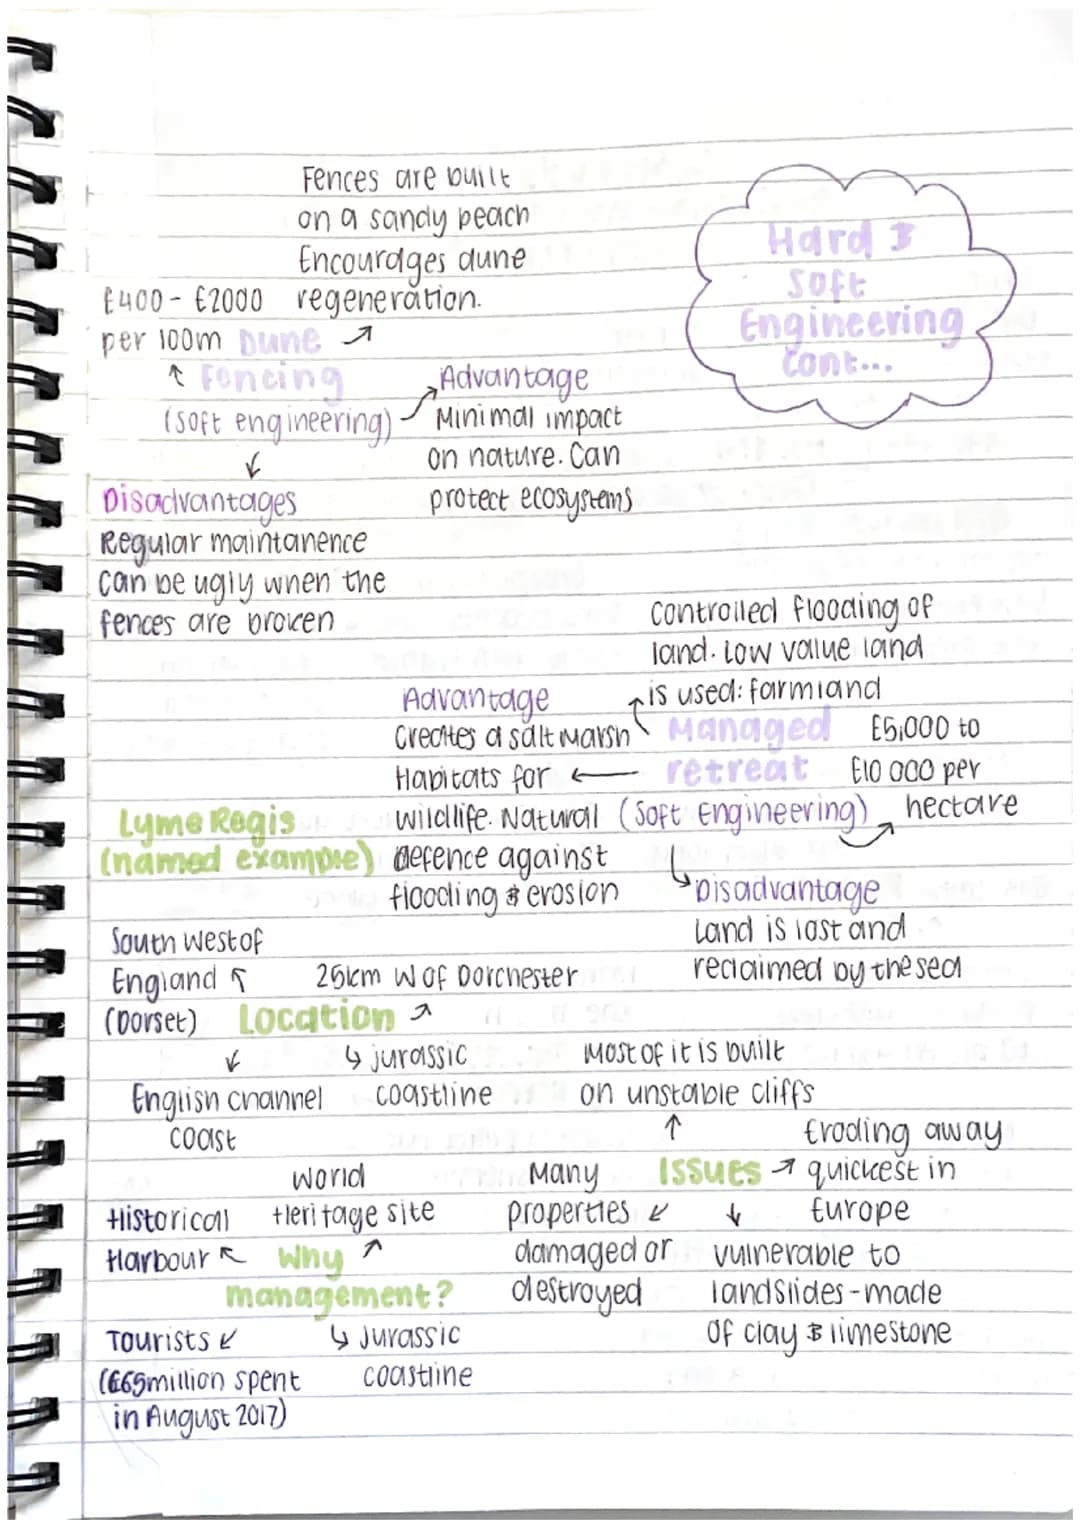 Hard &
Soft
Engineering
Cont...
Fences are built
on a sandy beach
Encourages dune
regeneration.
£400 - £2000
per 100m
Dune
Fencing
(soft engineering)
Advantage
Minimal impact
on nature. Can
protect ecosystems
Disadvantages
Regular maintanence
Can be ugly when the
fences are broken
Controlled flooding of
land. Low value land
is used: farmland
Managed
retreat
(Soft Engineering)
£5,000 to
£10 000 per
hectare
Advantage
Creates a salt marsh
Habitats for
wildlife. Natural
defence against
flooding & erosion
Disadvantage
Land is lost and
reclaimed by the sea
Lyme Regis
(named example)
South West of
England
(Dorset)
25km W of Dorchester
Location
jurassic
coastline
English channel
coast
Most of it is built
on unstable cliffs
Issues
Eroding away
quickest in
Europe
Many
properties
damaged or
destroyed
vulnerable to
landslides - made
of clay & limestone
World
Heritage site
Historical
Harbour
Why
management?
Tourists
(£65million spent
in August 2017)
Jurassic
coastline